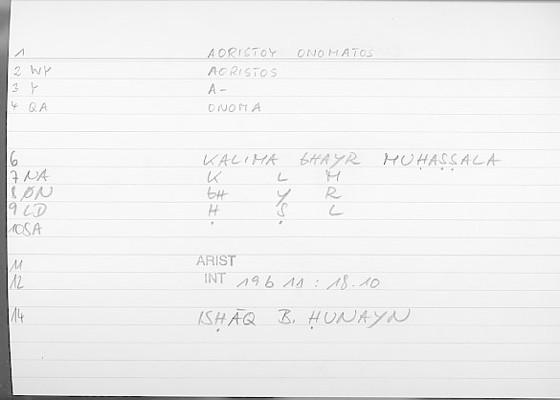 1 AORISTOY ONOMATOS
2 WY AORISTOS
3 Y A-
4 QA ONOMA
6 KALIMA GHAYR MUḤAṢṢALA
7 NA K L M
8 ØN GH Y R
9 LD Ḥ Ṣ L
10 SA
11 ARIST
12 INT 19b 11 : 18.10
14 ISḤĀQ B. ḤUNAYN